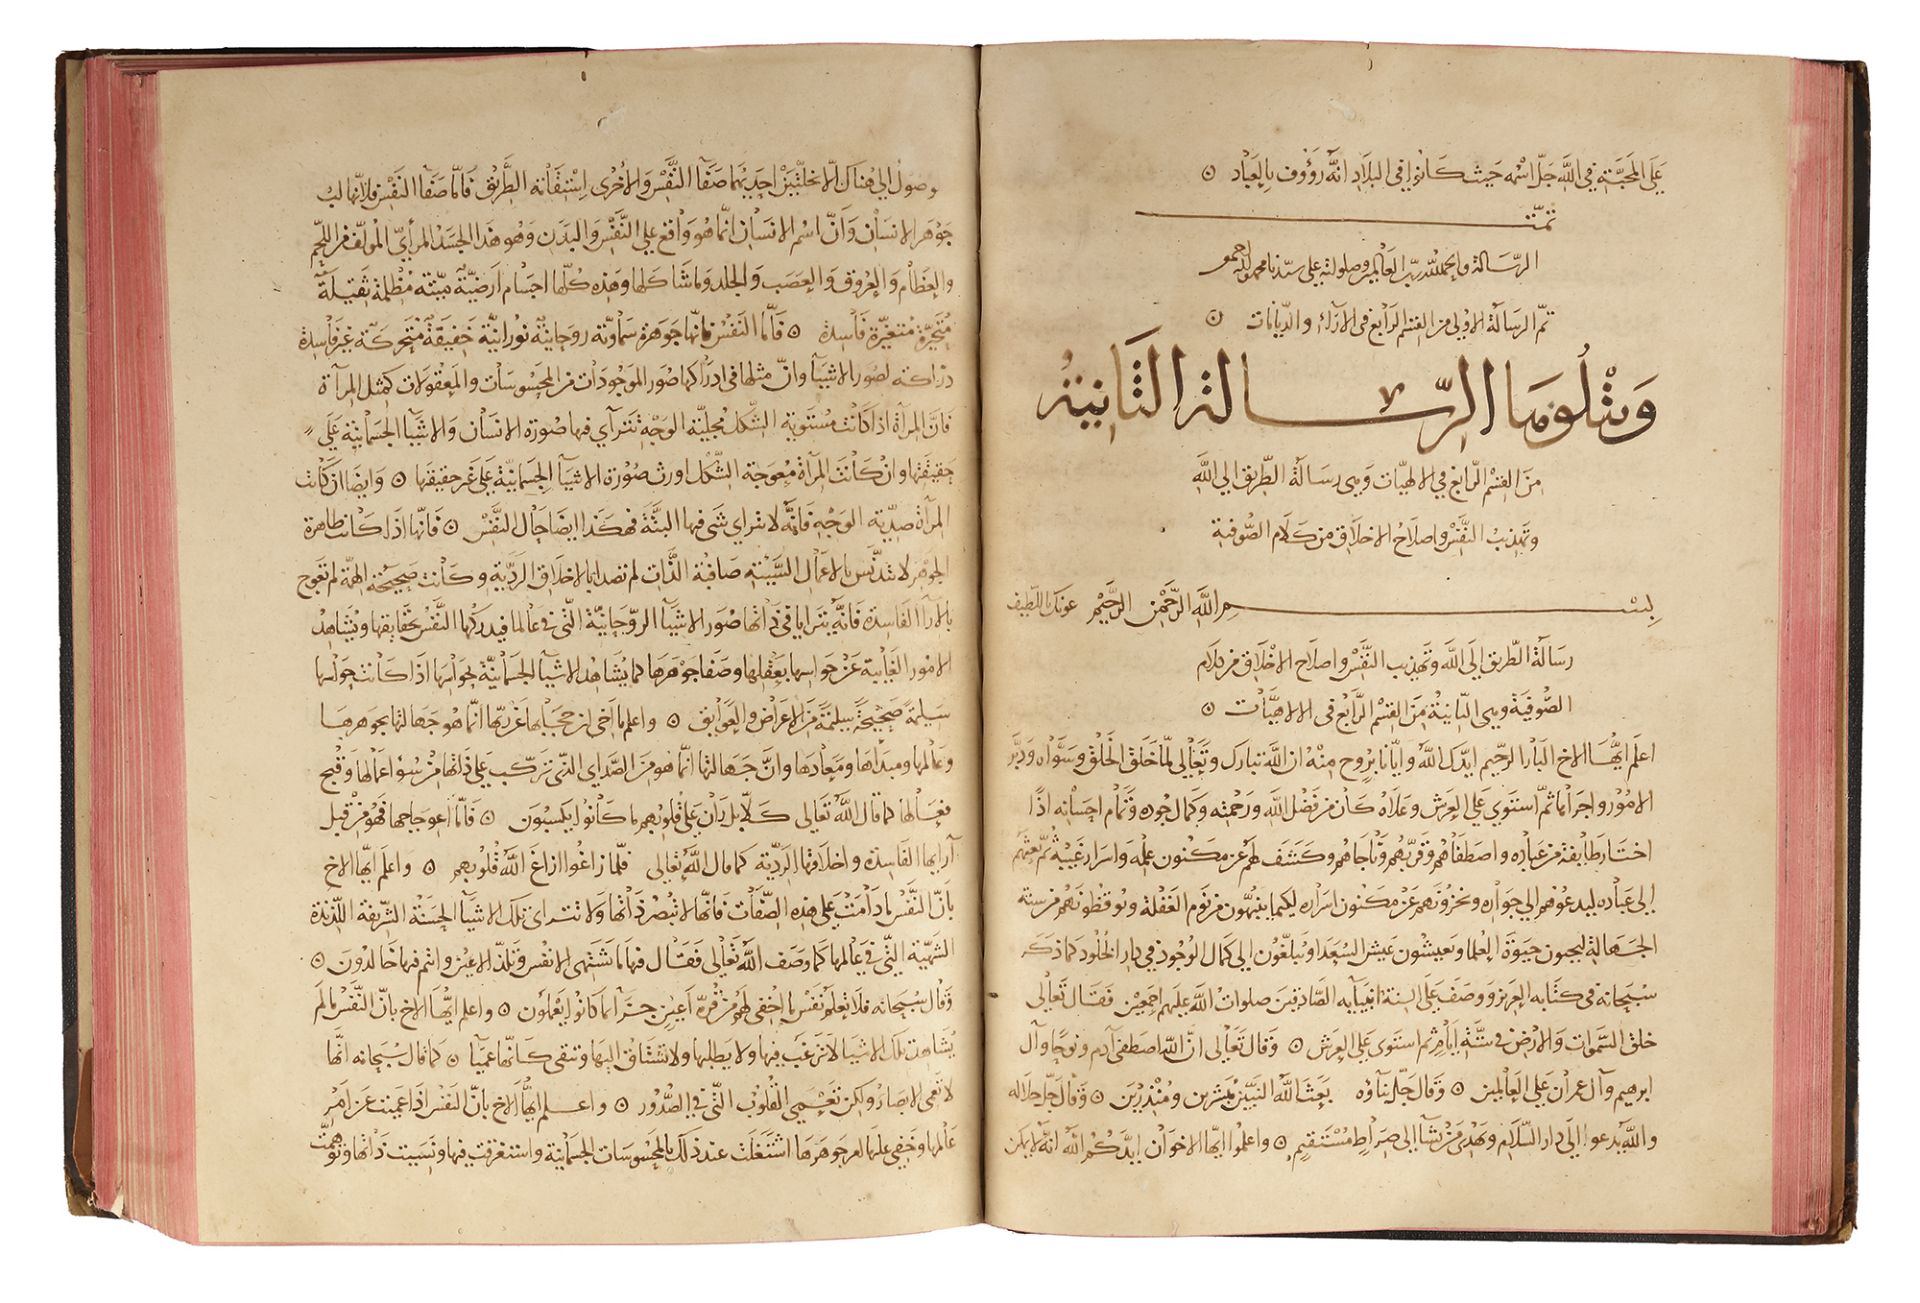 على المحبّة في الله جلّ اسمه حيث كانوا في البلاد انّه رؤوف بالعباد ۞
تمّت
الرسالة والحمد لله ربّ العالمين وصلوته على سيّدنا محمد وآله اجمعين
تمّ الرسالة الاولى من القسم الرابع في الآراء والديانات ۞
ويتلوها الرّسالة الثانية
من القسم الرابع في الالهيات وهي رسالة الطريق الى الله
وتهذيب النّفس واصلاح الاخلاق من كلام الصّوفية
بسم الله الرّحمن الرّحيم عونك يا لطيف
رسالة الطريق الى الله وتهذيب النّفس واصلاح الاخلاق من كلام
الصّوفية وهي الثانية من القسم الرابع في الالهيات ۞
اعلم ايّها الاخ البارّ الرحيم ايّدك الله وايّانا بروح منه ان الله تبارك وتعالى لمّا خلق الخلق وسوّاه ودبّر
الامور واجراها ثمّ استوى على العرش وعلاه كان من فضل الله ورحمته وكمال جوده وتمام احسانه اذا
اختار طايفة من عباده واصطفاهم وقرّبهم وناجاهم وكشف لهم عن مكنون علمه واسرار غيبه ثمّ بعثهم
الى عباده ليدعوهم الى جواره ويخبرونهم عن مكنون اسراره لكيما ينتبهون من نوم الغفلة ويوقظونهم من سنة
الجهالة ليحيون حيوة العلما ويعيشون عيش السعدا ويبلّغون الى كمال الوجود في دار الخلود كما ذكر
سبحانه في كتابه العزيز ووصف على السنة انبيآيه الصادقين صلوات الله عليهم اجمعين فقال تعالى
خلق السموات والارض في ستّة ايّام ثم استوى على العرش ۞ وقال تعالى انّ الله اصطفى آدم ونوحا وآل
ابرهيم وآل عمران على العالمين ۞ وقال جلّ ثنآؤه بعث الله النبيّين مبشّرين ومنذرين ۞ وقال جلّ جلاله
والله يدعوا الى دار السّلام ويهدي من يشآ الى صراط مستقيم واعلموا ايّها الاخوان ايّدكم الله انّه لا يمكن
وصول الى هناك الا بخلّتين احديهما صفآ النّفس والاخرى استقامة الطّريق فامّا صفآ النّفس فلانّها لبّ
جوهر الانسان وانّ اسم الانسان انّما هو واقع على النّفس والبدن وهو هذا الجسد المرأيّ المولّف من اللحم
والعظام والعروق والعصب والجلد وما شاكلها وهذه كلّها اجسام ارضيّة ميّتة مظلمة ثقيلة
متجزّية متغيّرة فاسدة ۞ فامّا النفس فانّها جوهرة سماويّة روحانيّة نورانيّة خفيفة متحركة غير فاسدة
درّاكة لصور الاشيآ وانّ مثلها في ادراكها صور الموجودات من المحسوسات والمعقولات كمثل المرآة
فانّ المرآة اذا كانت مستوية الشكل مجليّة الوجه تترآى فيها صورة الانسان والاشيآ الجسمانية على
حقيقتها وان كانت المرآة معوجة الشّكل اورت صورة الاشيآ الجسمانيّة على غير حقيقتها ۞ وايضا ان كانت
المرآة صديّة الوجه فانّه لا يترآى شى فيها البتّة فهكذا ايضا حال النّفس ۞ فانّها اذا كانت طاهرة
الجوهر لا تتدنّس بالاعمال السّيّئة صافية الذّات لم تصدا بالاخلاق الرديّة وكانت صحيحة الهمّة لم تعوج
بالآرآ الفاسدة فانّه يترايا في ذاتها صور الاشيآ الروحانيّة الّتي في عالمها فيدركها النّفس بحقايقها وتشاهد
الامور الغايبة عن حواسها بعقلها وصفا جوهرها كما يشاهد الاشيآ الجسمانيّة بحواسها اذا كانت حواسها
سليمة صحيحة سليمة من الاعراض والعوايق ۞ واعلم يا اخي ان حجابها عن ربّها انّما هو جهالتها بجوهرها
وعالمها ومبدأها ومعادها وانّ جهالتها انّما هو من الصّداي الّتي تركّب على ذاتها من سؤ اعمالها وقبح
فعالها كما قال الله تعالى كلّا بل ران على قلوبهم ما كانوا يكسبون ۞ فامّا اعوجاجها فهو من قبل
آرايها الفاسدة واخلاقها الرديّة كما قال الله تعالى فلمّا زاغوا ازاغ الله قلوبهم ۞ واعلم ايّها الاخ
بانّ النّفس ما دامت على هذه الصّفات فانّها لا تبصر ذاتها ولا تترآى تلك الاشيآ الحسنة الشّريفة اللّذيذة
الشهيّة الّتي في عالمها كما وصف الله تعالى فقال فيها ما تشتهى الانفس وتلذّ الاعين وانتم فيها خالدون ۞
وقال سبحانه فلا تعلم نفس ما اخفى لهم من قرّة اعين جزآ بما كانوا يعملون ۞ واعلم ايّها الاخ بانّ النّفس ما لم
يشاهد تلك الاشيا لا ترغب فيها ولا يطلبها ولا تشتاق اليها وتبقى كانّها عميآ ۞ كما قال سبحانه انّها
لا تعمى الابصار ولكن تعمى القلوب التّي في الصّدور ۞ واعلم ايّها الاخ بانّ النفس اذا عميت عن امر
عالمها وخفي عليها امر جوهرها اشتغلت عند ذلك بالمحسوسات الجسمانية واستغرقت فيها ونسيت ذاتها وتوهّمت